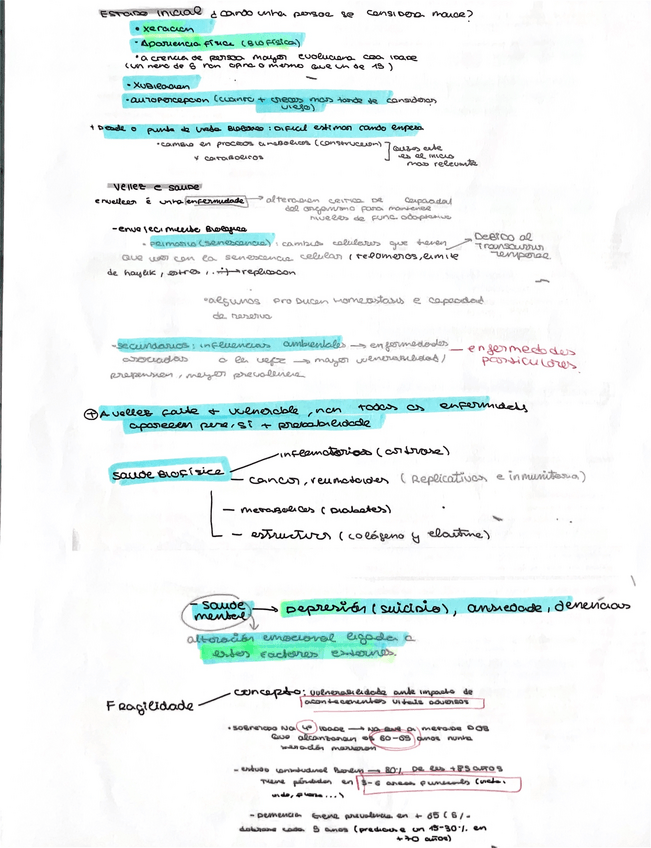 Estado inicial ¿cando unha persoa se considera maior?
• Xeración
• Apariencia física (Biofísica)
*a crencia de persoa mayor evoluciona coa idade
(un neno de 6 non opina o mesmo que un de 15)
• Xubilación
• autopercepción (canto + creces mais tarde te consideras
viejo)
+ Desde o punto de vista Biolóxico: difícil estimar cando empeza
• cambio en procesos anabólicos (construcción)
y catabólicos
este
es el inicio
mas relevante
Vellez e saude
envellecer é unha enfermidade → alteración crítica de capacidad
del organismo para mantener
niveles de función adaptativa
- envellecimiento Biológico
- primario (senescencia): cambios celulares que tienen
que ver con la senescencia celular (telómeros, límite
de hayflick, estrés, ... → replicación
Debido al
transcurso
temporal
*algunos producen homeostasis e capacidad
de reserva
- secundarios: influencias ambientales → enfermedades
asociadas a la vejez → mayor vulnerabilidad/
propensión, mayor prevalencia
— enfermedades
particulares.
+ A vellez faite + vulnerable, non todas as enfermidades
aparecen pero, si + probabilidade
saude Biofísica
inflamatorios (artrose)
— cancer, reumatoides (Replicativas e inmunitaria)
— metabólicos (Diabetes)
— estructura (colágeno y elastina)
- saude
mental → Depresión (suicidio), ansiedade, demencias
alteración emocional ligada a
estos factores externos.
Fragilidade
concepto: vulnerabilidade ante impacto de
acontecementos vitais adversos
• sobretodo na 4ª idade → na que a metade dos
que alcanzaron os 60-65 anos nunha
xeración morreron
- estudo lonxitudinal Berlín → 80% de los +85 años
tiene pérdidas en 5-6 areas funcionales (vista,
oído, ...)
- Demencia tiene prevalencia en + 65 (6%
dóblase cada 5 anos (predicise un 15-30% en
+70 años)